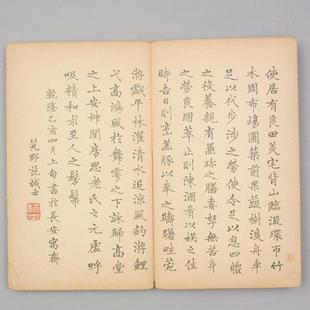 使居有良田美宅背山臨流環帀竹
木周布場圃築前果園樹後舟車
足以代步涉之勞使令足以息四體
之役養親有兼珍之膳妻孥無苦身
之勞良朋萃止則陳酒肴以娛之佳
時吉日則烹羔豚以奉之躊躇畦菀
游戲平林濯清水追涼風釣游鯉
弋高鴻風於舞雩之下詠歸高堂
之上安神閨房思老氏之元虛呼
吸精和求至人之髣髴
乾隆乙亥四月上旬書於長安寓齋